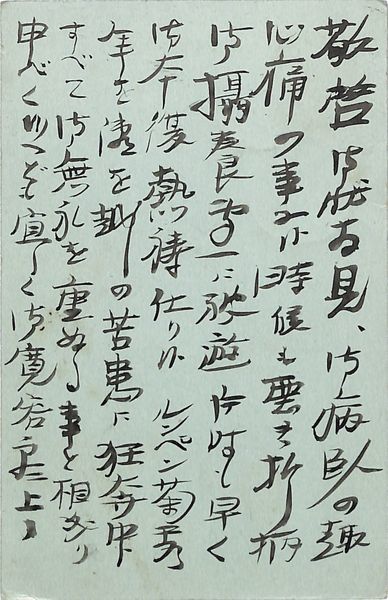 敬啓 御状拝見、御病臥の趣
心痛の事に候 時候も悪き折柄
御攝養専一に被遊 片時も早く
御本復熱禱仕り候 ルンペン菊秀
年を歳を越の苦患に狂奔中
すべて御無礼を重ぬる事と相成り
申べく候へども宜しく御寛容願上候